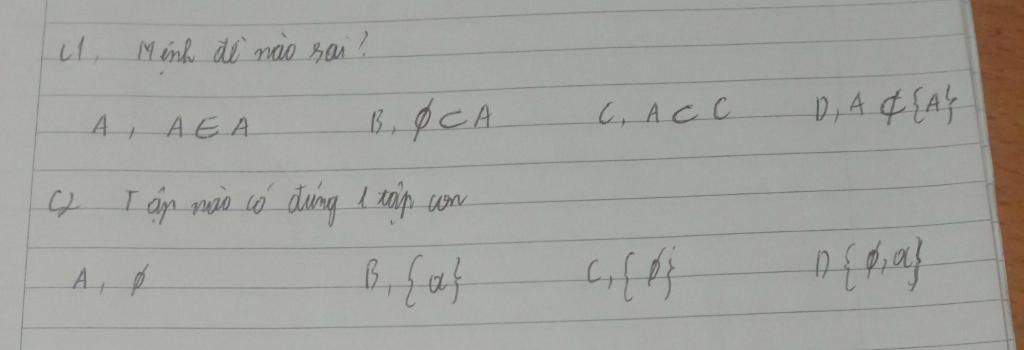 C1, Mệnh đề nào sai?
A, A ∈ A B, ∅ ⊂ A C, A ⊂ C D, A ⊄ {A}
C2 Tập nào có đúng 1 tập con
A, ∅ B, {a} C, {∅} D {∅, a}